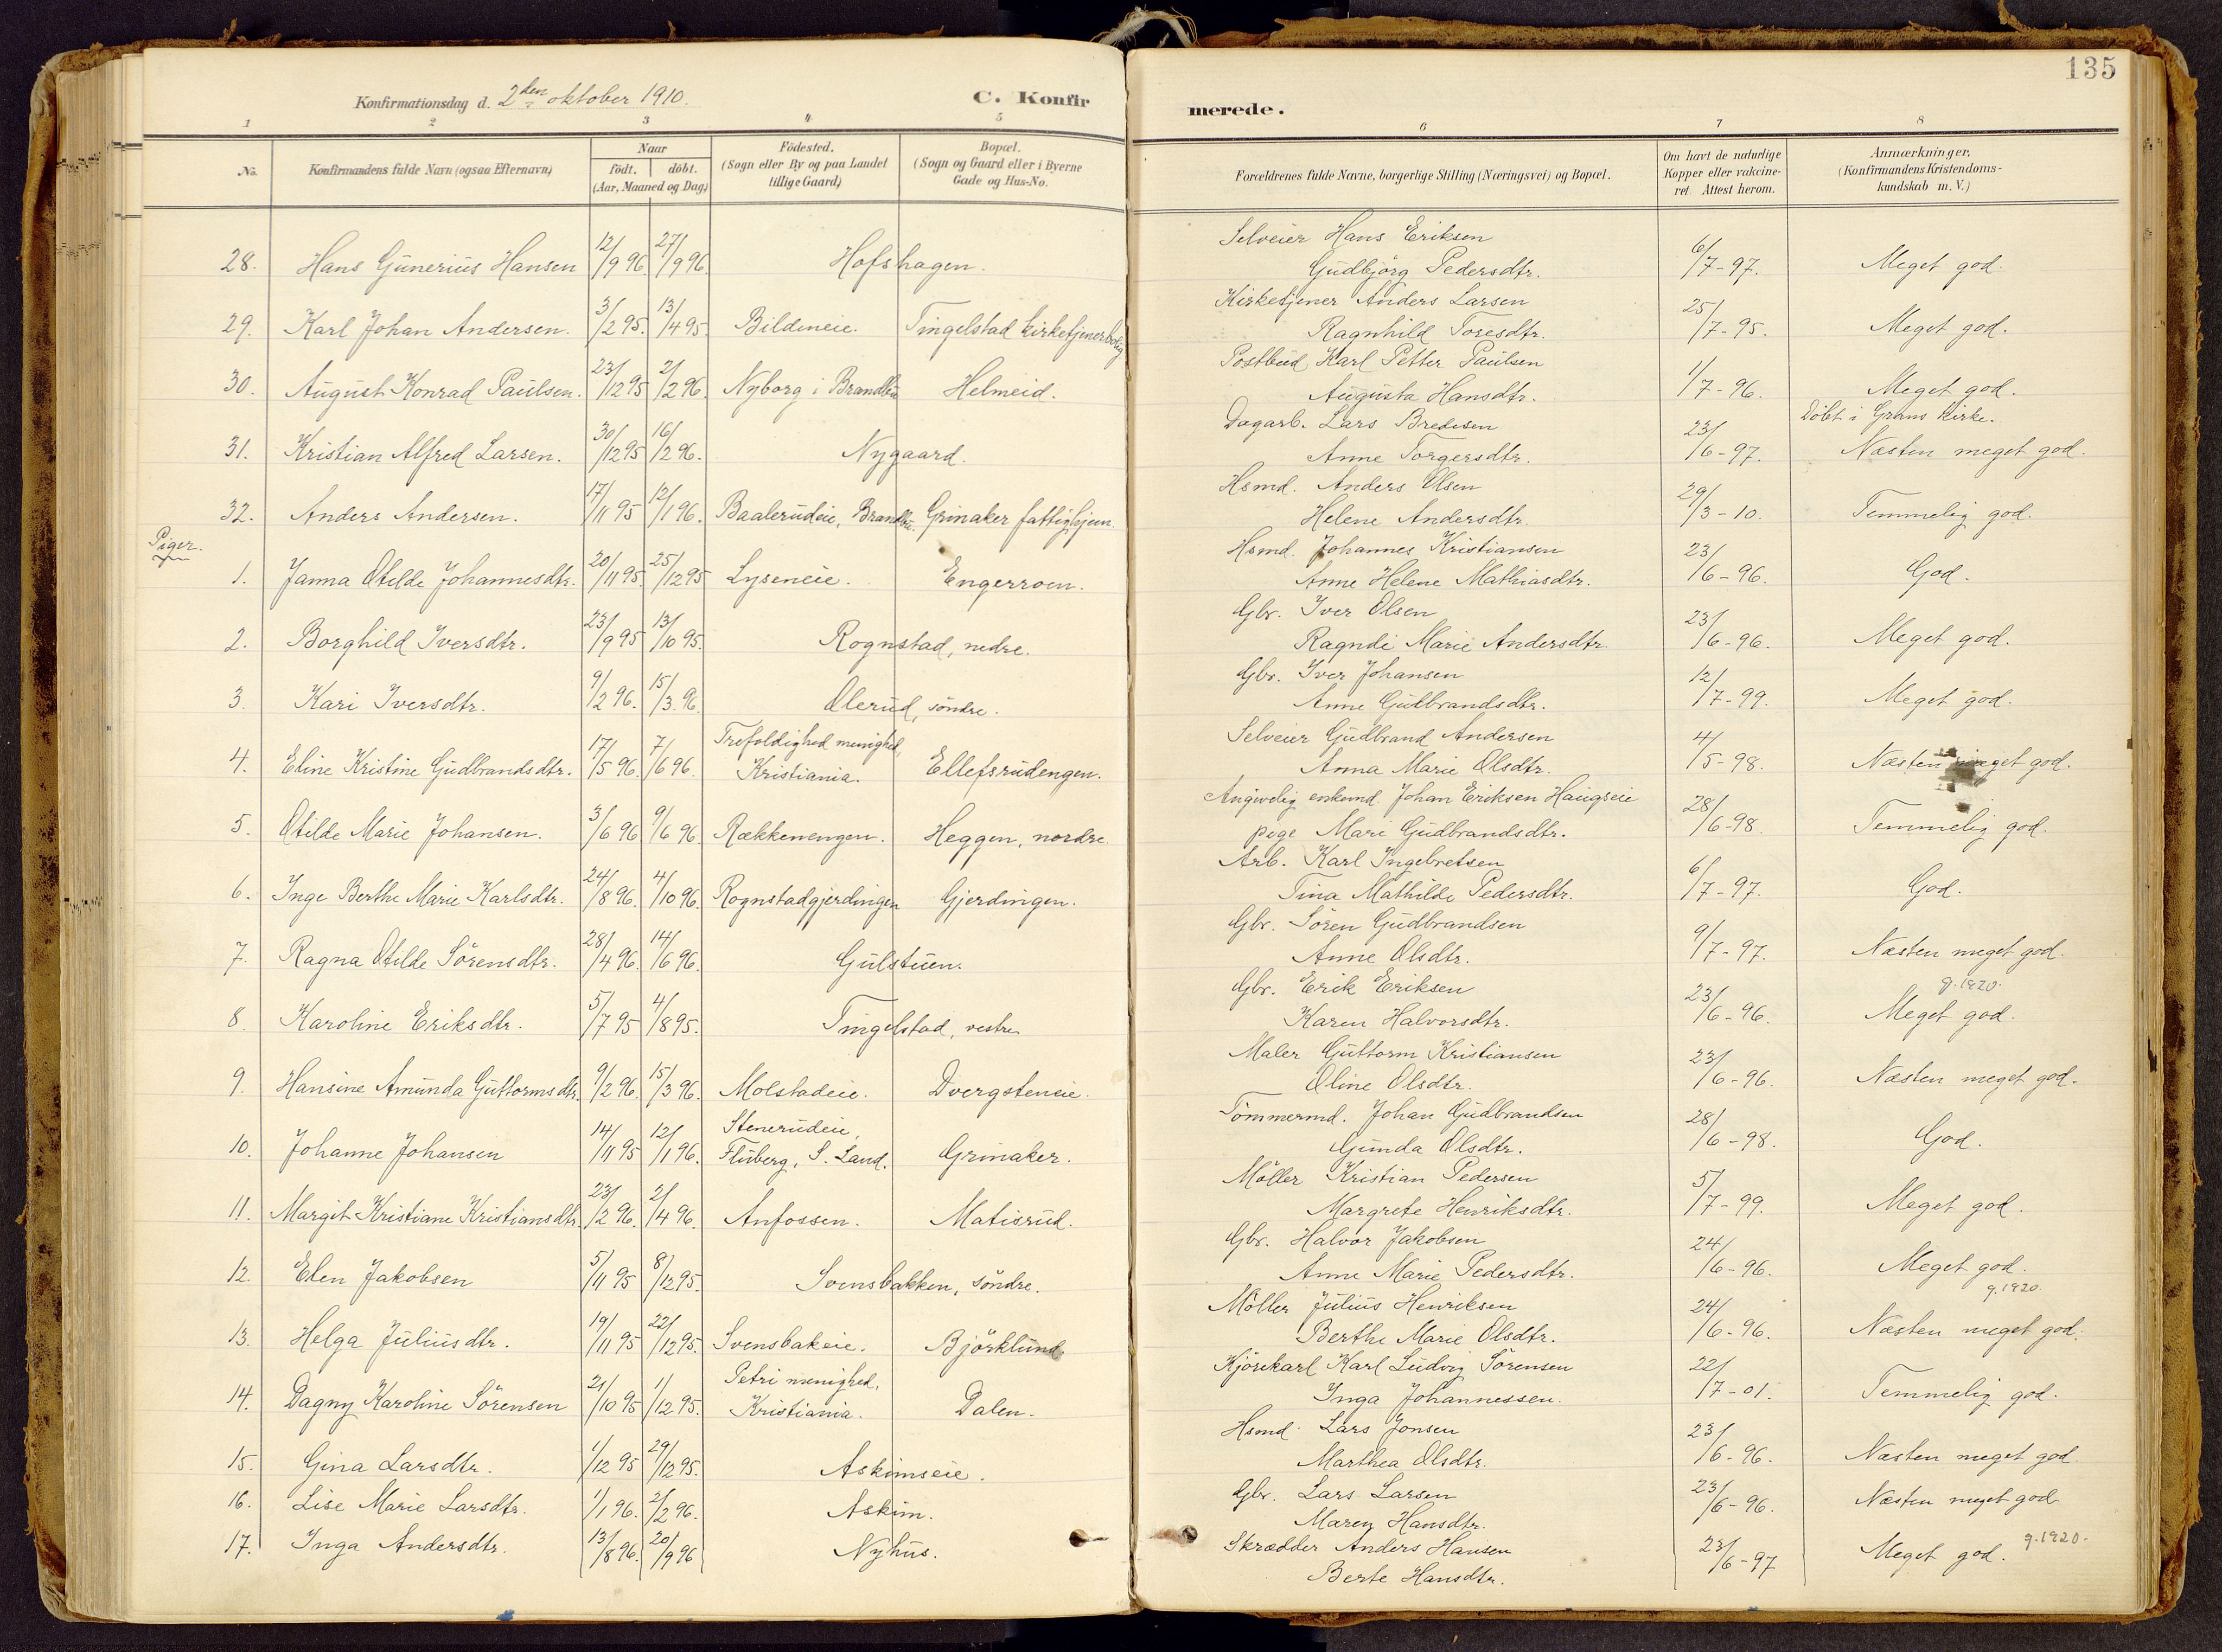 135
Konfirmationsdag d. 2den oktober 1910.
C. Konfirmerede.
1 2 3 4 5 6 7 8
No. Konfirmandens fulde Navn (ogsaa Efternavn) Naar födt. döbt. (Aar, Maaned og Dag) Födested. (Sogn eller By og paa Landet tillige Gaard) Bopæl. (Sogn og Gaard eller i Byerne Gade og Hus-No. Forældrenes fulde Navne, borgerlige Stilling (Næringsvei) og Bopæl. Om havt de naturlige Kopper eller vakcineret. Attest herom. Anmærkninger. (Konfirmandens Kristendomskundskab m. V.)
28. Hans Gunerius Hansen 12/9 96 27/9 96. Hofshagen. Selveier Hans Eriksen 6/7-97. Meget god.
Gudbjörg Pedersdtr.
29. Karl Johan Andersen. 3/2 95. 13/4 95 Bildeneie. Tingelstad kirketjenerbolig Kirketjener Anders Larsen 25/7-95. Meget god.
Ragnhild Toresdtr.
30. August Konrad Paulsen. 23/12 95 2/2 96. Nyborg i Brandbu Helmeid. Postbud Karl Petter Paulsen 1/7-96. Meget god.
Augusta Hansdtr. Döbt i Grans kirke.
31. Kristian Alfred Larsen. 30/12 95 16/2 96. Nygaard. Dagarb. Lars Bredesen 23/6-97. Næsten meget god.
Anne Torgersdtr.
32. Anders Andersen. 17/11 95 12/1 96. Baalerudeie, Brandbu. Grinaker fattighjem. Hsmd. Anders Olsen 29/3-10. Temmelig god.
Helene Andersdtr.
Piger.
1. Janna Otilde Johannesdtr. 20/11 95. 25/12 95 Lyseneie. Engerroen. Hsmd. Johannes Kristiansen 23/6-96. God.
Anne Helene Mathiasdtr.
2. Borghild Iversdtr. 23/9 95 13/10 95. Rognstad, nedre. Gbr. Iver Olsen 23/6-96. Meget god.
Ragndi Marie Andersdtr.
3. Kari Iversdtr. 9/2 96. 15/3. 96. Olerud, söndre. Gbr. Iver Johansen 12/7-99. Meget god.
Anne Gulbrandsdtr.
4. Eline Kristine Gudbrandsdtr. 17/5 96. 7/6 96. Trefoldighed menighed, Kristiania. Ellefsrudengen. Selveier Gudbrand Andersen 4/5-98. Næsten meget god.
Anna Marie Olsdtr.
5. Otilde Marie Johansen. 3/6 96 9/6 96 Rækkenengen. Heggen, nordre. Angivelig enkemd. Johan Eriksen Haugseie 28/6-98. Temmelig god.
pige Mari Gudbrandsdtr.
6. Inge Berthe Marie Karlsdtr. 24/8 96. 4/10 96. Rognstadgjerdingen Gjerdingen. Arb. Karl Ingebretsen 6/7-97. God.
Tina Mathilde Pedersdtr.
7. Ragna Otilde Sörensdtr. 28/4 96. 14/6 96. Gulstuen. Gbr. Sören Gudbrandsen 9/7-97. Næsten meget god.
Anne Olsdtr. g. 1920.
8. Karoline Eriksdtr. 5/7 95 4/8 95. Tingelstad, vestre. Gbr. Erik Eriksen 23/6-96. Meget god.
Karen Halvorsdtr.
9. Hansine Amunda Guttormsdtr. 9/2 96. 15/3 96. Molstadeie. Dvergsteneie. Maler Guttorm Kristiansen 23/6-96. Næsten meget god.
Oline Olsdtr.
10. Johanne Johansen 14/11 95 12/1 96. Stenerudeie, Fluberg, S. Land. Grinaker. Tömmermd. Johan Gudbrandsen 28/6-98. God.
Gunda Olsdtr.
11. Margit Kristiane Kristiansdtr. 23/2 96. 2/4 96. Anfossen. Matisrud. Möller Kristian Pedersen 5/7-99. Meget god.
Margrete Henriksdtr.
12. Elen Jakobsen 5/11 95 8/12 95. Svensbakken, söndre. Gbr. Halvor Jakobsen 24/6-96. Meget god.
Anne Marie Pedersdtr. g. 1920.
13. Helga Juliusdtr. 19/11 95 22/12 95. Svensbakeie. Björklund. Möller Julius Henriksen 24/6-96. Næsten meget god.
Berthe Marie Olsdtr.
14. Dagny Karoline Sörensen 21/10 95 1/12 95. Petri menighed, Kristiania. Dalen. Kjörekarl Karl Ludvig Sörensen 22/7-01. Temmelig god.
Inga Johannessen.
15. Gina Larsdtr. 1/12 95 29/12 95. Askimseie. Hsmd. Lars Jonsen 23/6-96. Næsten meget god.
Marthea Olsdtr.
16. Lise Marie Larsdtr. 1/1 96. 2/2 96. Askim. Gbr. Lars Larsen 23/6-96. Næsten meget god
Maren Hansdtr.
17. Inga Andersdtr. 13/8 96. 20/9 96 Nyhus. Skrædder Anders Hansen 23/6-97 Meget god. g. 1920.
Berte Hansdtr.